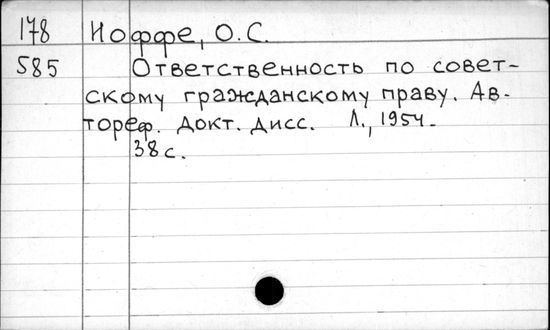 178 Иоффе, О.С.
585 Ответственность по совет-
скому гражданскому праву. Ав-
тореф. докт. дисс. Л., 1954.
38 с.